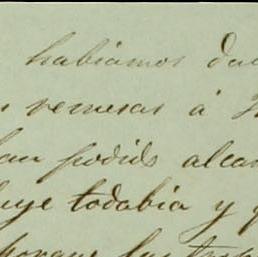 habiamos da
remesas á
han podido alca
uye todabia y q
porque las trop